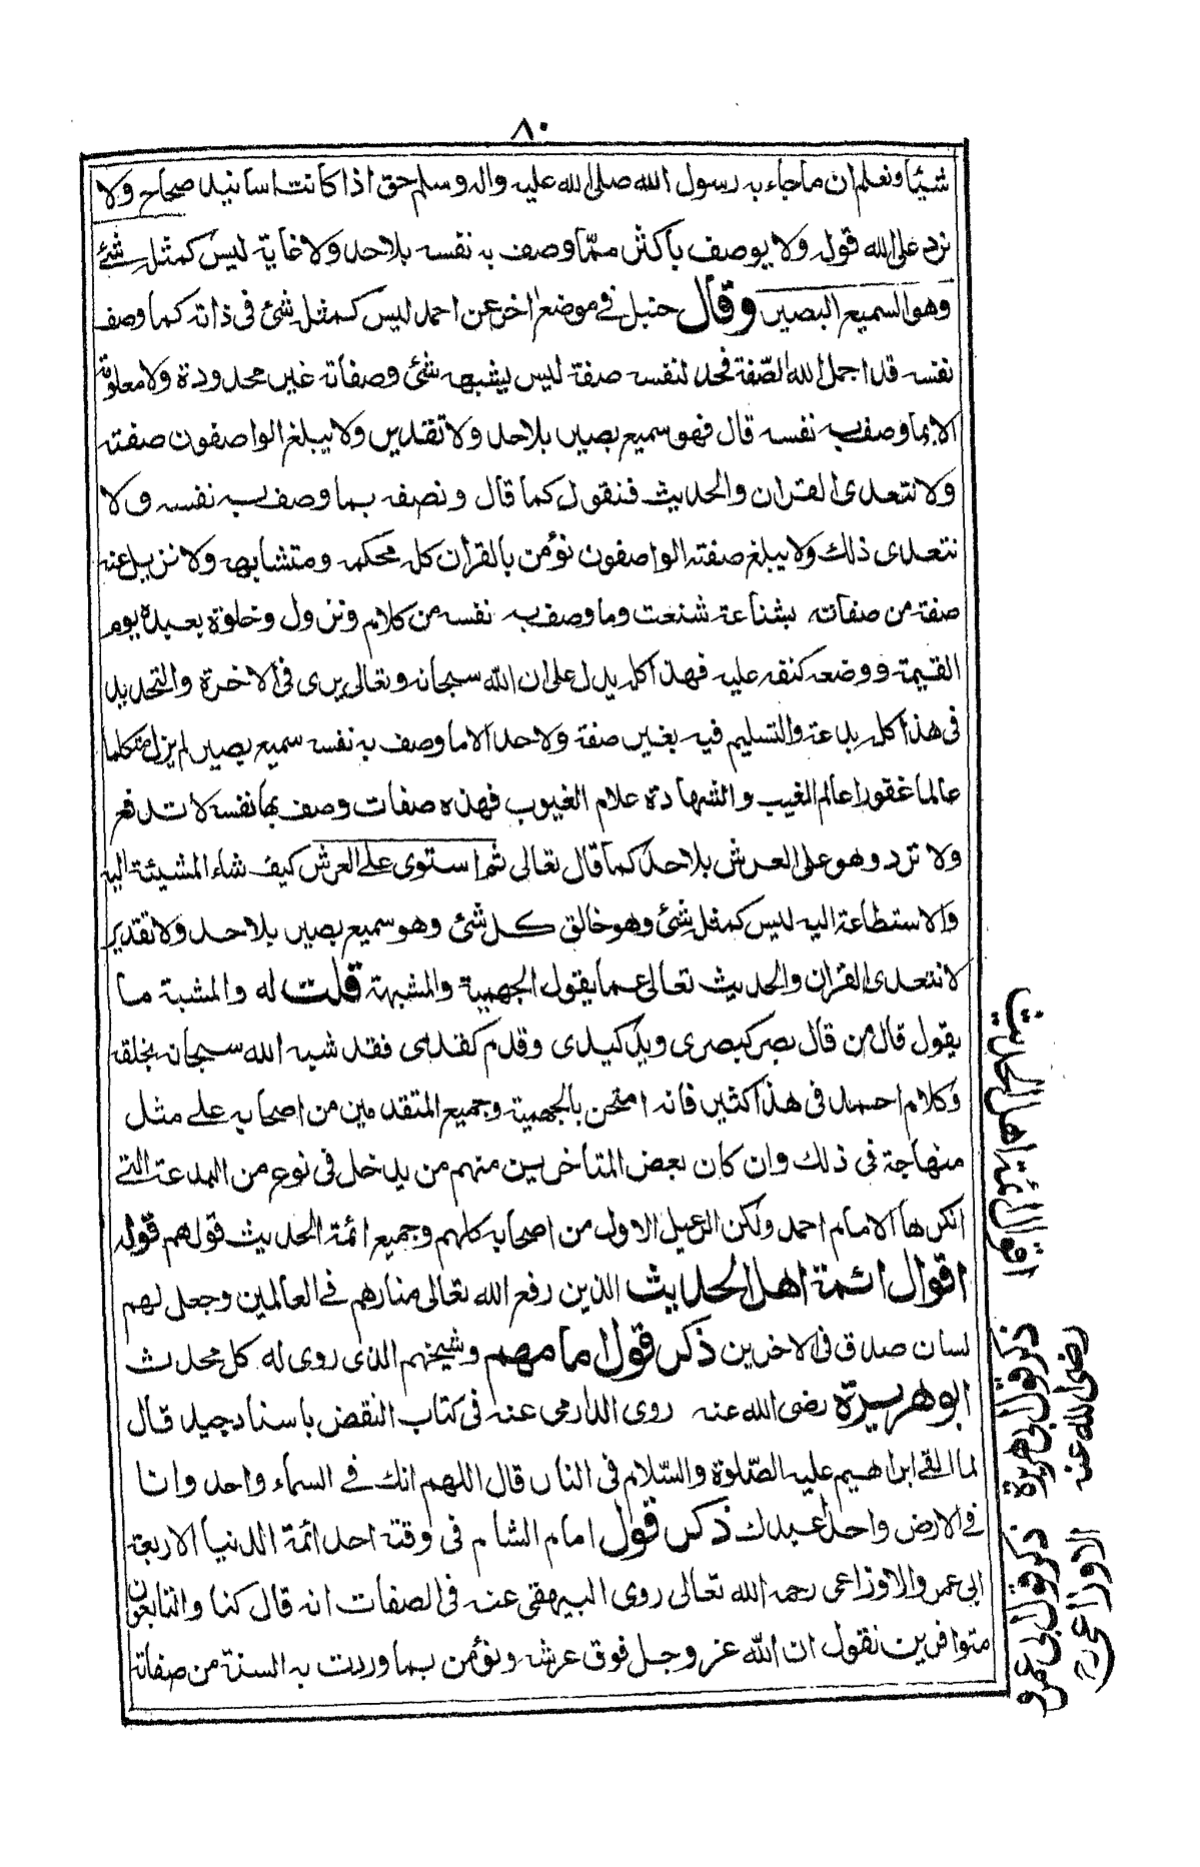 ٨٠
شيئا ونعلم ان ما جاء به رسول الله صلى الله عليه واله وسلم حق اذا كانت اسانيد صحاح ولا
نرد على الله قوله ولا يوصف باكثر مما وصف به نفسه بلا حد ولا غاية ليس كمثله شئ
وهو السميع البصير وقال حنبل فى موضع اخر عن احمد ليس كمثله شئ فى ذاته كما وصف
نفسه قد اجمل الله الصّفة فحد لنفسه صفة ليس يشبهه شئ وصفاته غير محدودة ولا معلومة
الا بما وصف به نفسه قال فهو سميع بصير بلا حد ولا تقدير ولا يبلغ الواصفون صفته
ولا نتعدى القران والحديث فنقول كما قال ونصفه بما وصف به نفسه ولا
نتعدى ذلك ولا يبلغ صفته الواصفون نؤمن بالقران كله محكمه ومتشابهه ولا نزيل عنه
صفة من صفاته بشناعة شنعت وما وصف به نفسه من كلام ونزول وخلوة بعبده يوم
القيمة ووضعه كنفه عليه فهذا كله يدل على ان الله سبحانه وتعالى يرى فى الاخرة والتحديد
فى هذا كله بدعة والتسليم فيه بغير صفة ولا حد الا ما وصف به نفسه سميع بصير لم يزل متكلما
عالما غفورا عالم الغيب والشهادة علام الغيوب فهذه صفات وصف بها نفسه لا تدفع
ولا ترد وهو على العرش بلا حد كما قال تعالى ثم استوى على العرش كيف شاء المشيئة اليه
والاستطاعة اليه ليس كمثله شئ وهو خالق كل شئ وهو سميع بصير بلا حد ولا تقدير
لا نتعدى القران والحديث تعالى عما يقول الجهمية والمشبهة قلت له والمشبة ما
يقول قال من قال بصر كبصرى ويد كيدى وقدم كقدمى فقد شبه الله سبحانه بخلقه
وكلام احمد فى هذا كثير فانه امتحن بالجهمية وجميع المتقدمين من اصحابه على مثل
منهاجة فى ذلك وان كان بعض المتاخرين منهم من يدخل فى نوع من البدعة التى
انكرها الامام احمد ولكن الرعيل الاول من اصحابه كلهم وجميع ائمة الحديث قولهم قوله
اقوال ائمة اهل الحديث الذين رفع الله تعالى منارهم فى العالمين وجعل لهم
لسان صدق فى الاخرين ذكر قول امامهم وشيخهم الذى روى له كل محدث
ابو هريرة رضى الله عنه روى الدارمى عنه فى كتاب النقض باسناد جيد قال
لما القى ابراهيم عليه الصّلوة والسّلام فى النار قال اللهم انك فى السماء واحد وانا
فى الارض واحد اعبدك ذكر قول امام الشام فى وقتة احد ائمة الدنيا الاربعة
ابى عمرو الاوزاعى رحمه الله تعالى روى البيهقى عنه فى الصفات انه قال كنا والتابعون
متوافرين نقول ان الله عز وجل فوق عرشه ونؤمن بما وردت به السنة من صفاته
اقوال ائمة اهل الحديث
ذكر قول ابى هريرة
رضى الله عنه
ذكر قول ابى عمرو
الاوزاعى